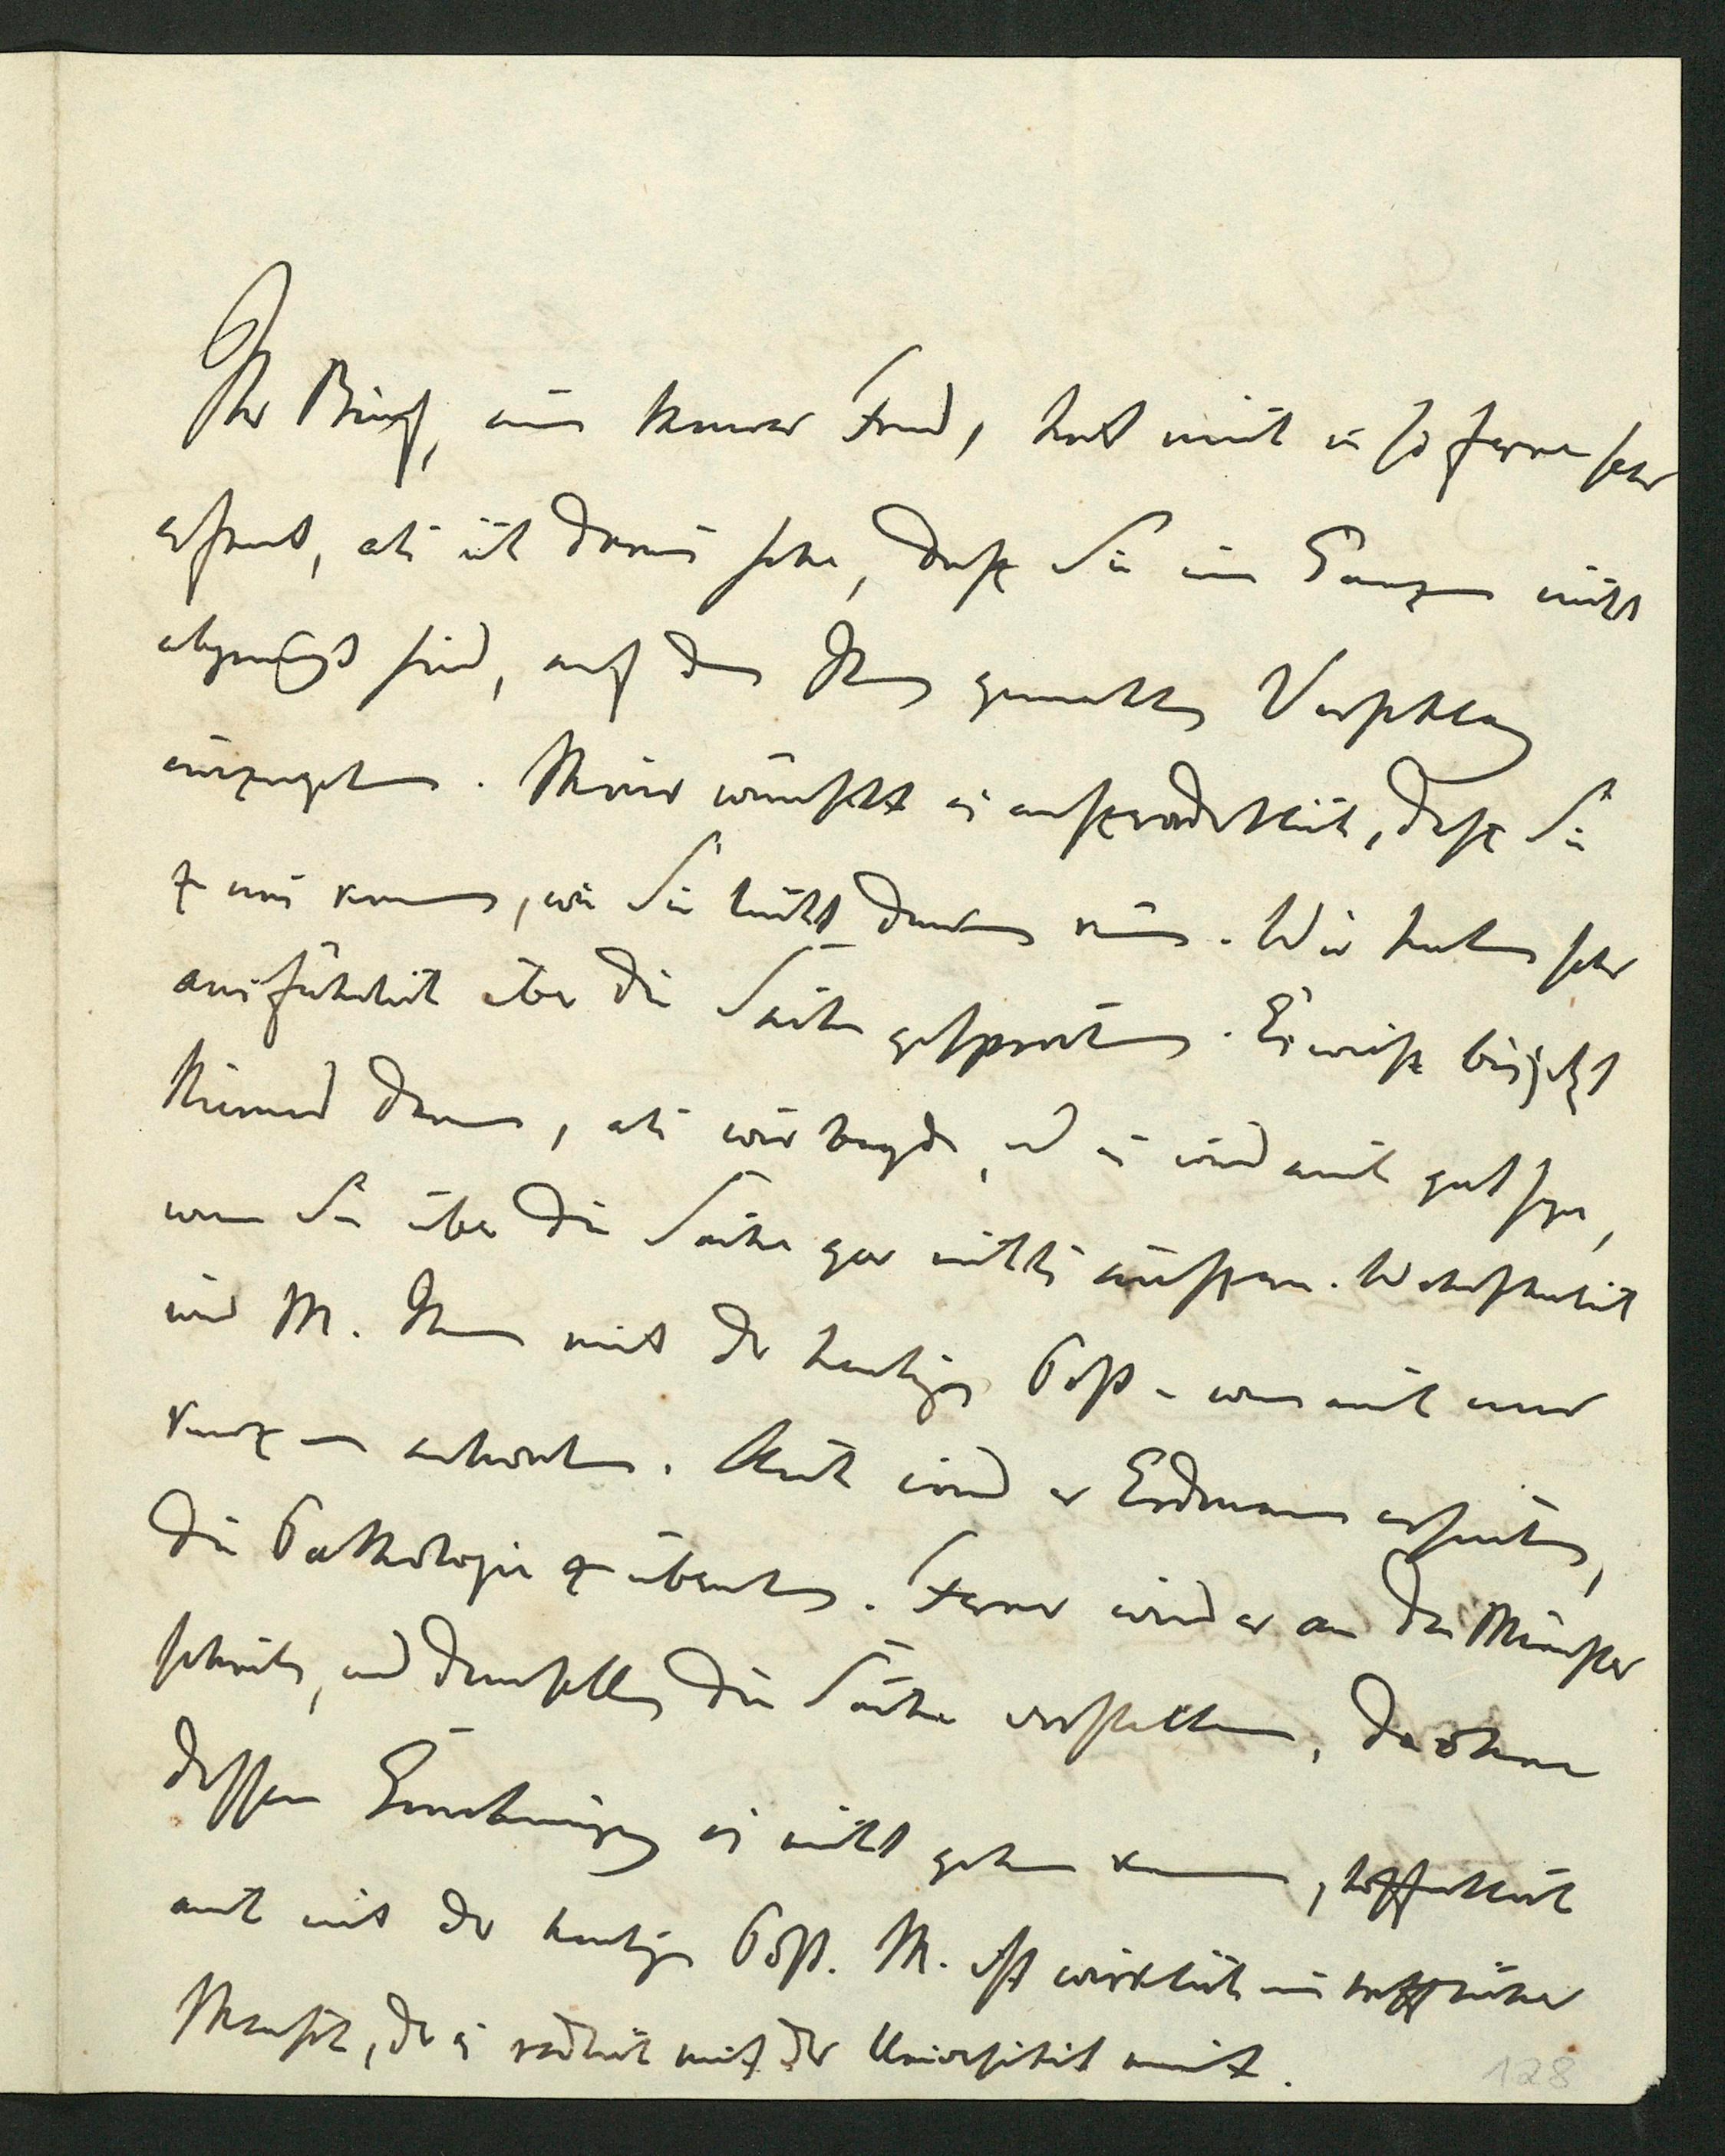 Ihr Brief, mein theurer Freund, hat mich in so ferne sehr
erfreut, als ich daraus sehe, daß Sie im Ganzen nicht
abgeneigt sind, auf den Ihnen gemachten Vorschlag
einzugehen. Meier wünscht es außerordentlich, daß Sie
zu uns kommen, wie Sie leicht denken können. Wir haben sehr
ausführlich über die Sache gesprochen. Es weiß bis jetzt
Niemand davon, als wir beyde, und es wird auch gut seyn,
wenn Sie über die Sache gar nichts äußern. Wahrscheinlich
wird M. Ihnen mit der heutigen Post, wenn auch nur
kurz antworten. Auch wird er Erdmann ersuchen,
die Pathologie zu übernehmen. Ferner wird er an den Minister
schreiben, und demselben die Sache vorstellen, da ohne
dessen Genehmigung es nicht gehen kann, hoffentlich
auch mit der heutigen Post. M. ist wirklich ein trefflicher
Mensch, der es redlich mit der Universität meint.
128